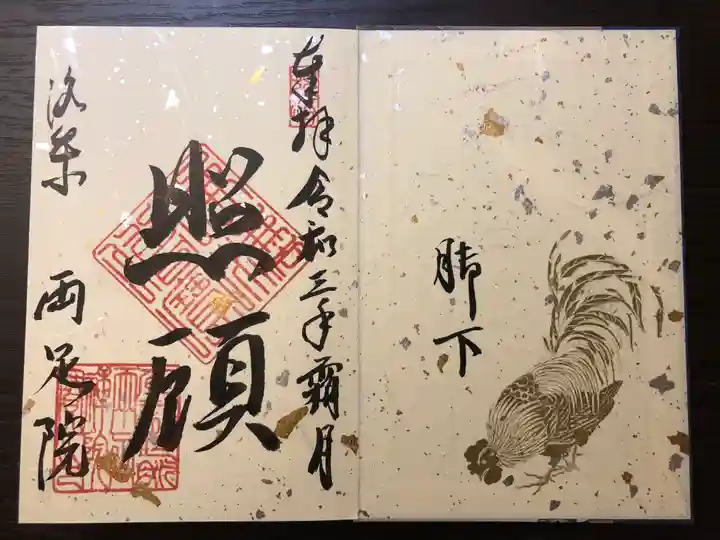 脚下
奉拝 令和三年霜月
照顧
洛東 両足院